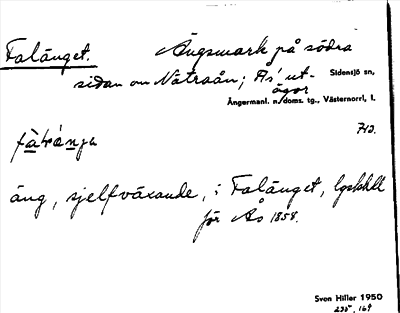 Falänget. Ängsmark på södra
sidan om Nätraån; Ås' ut- Sidensjö sn,
ägor
Ångermanl. n. doms. tg., Västernorrl. l.
712.
äng, sjelfväxande, i Falänget,
för Ås 1858.
Sven Hiller 1950
235, 169